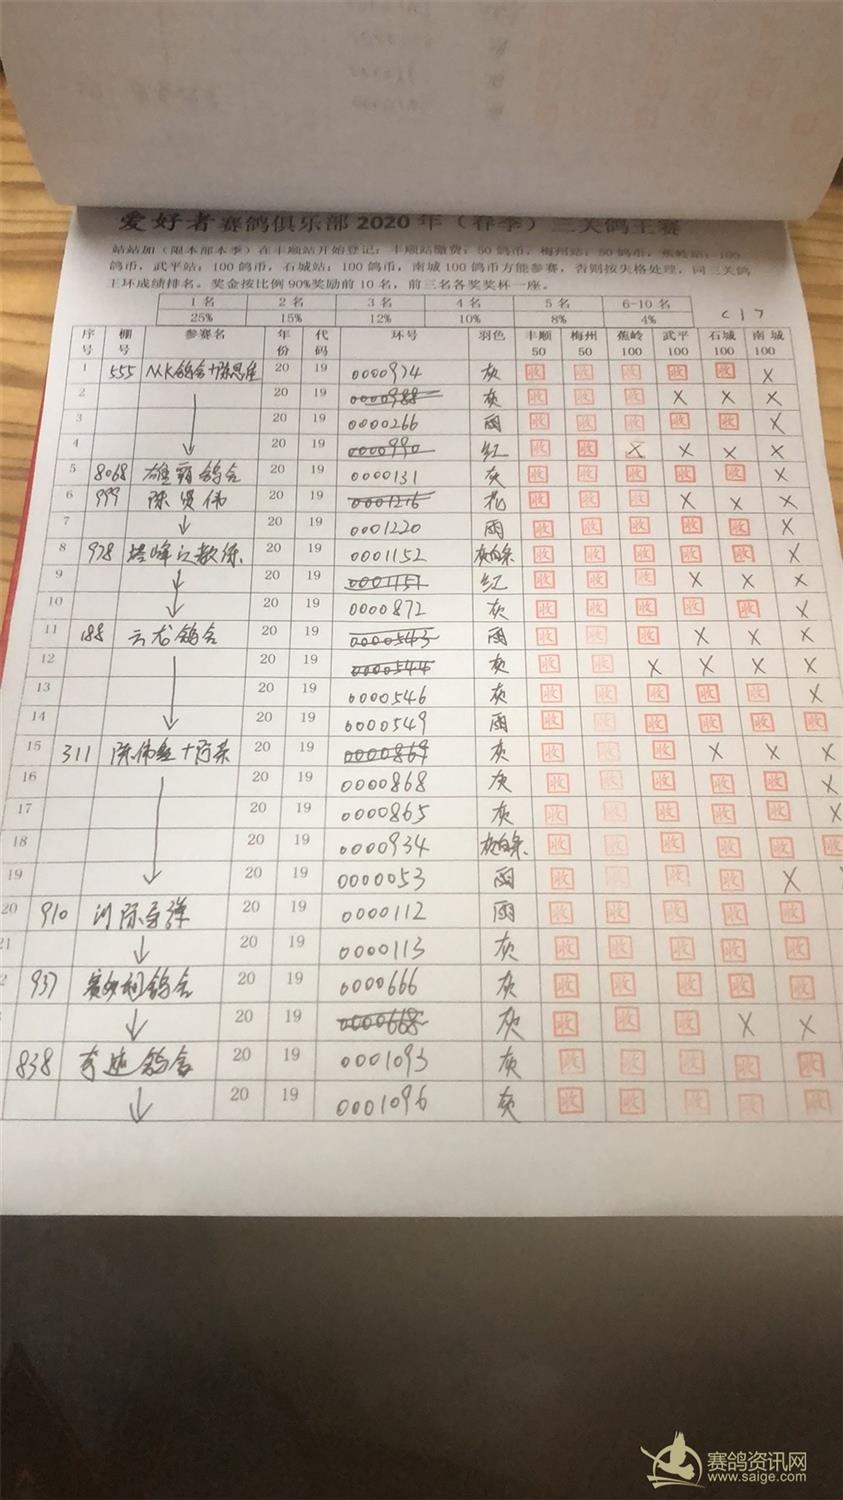 爱好者赛鸽俱乐部2020年（春季）三关鸽王赛
站站加（限本部本季）在丰顺站开始登记；丰顺站缴费：50鸽币，梅州站：50鸽币，蕉岭站：100
鸽币，武平站：100鸽币，石城站：100鸽币，南城100鸽币方能参赛，否则按失格处理，同三关鸽
王环成绩排名。奖金按比例90%奖励前10名，前三名各奖奖杯一座。
1名 2名 3名 4名 5名 6-10名
25% 15% 12% 10% 8% 4%
序号 棚号 参赛名 年份 代码 环号 羽色 丰顺50 梅州50 蕉岭100 武平100 石城100 南城100
1 555 20 19 0000974 灰 收 收 收 收 收 X
2 20 19 0000988 灰 收 收 收 X X X
3 20 19 0000266 雨 收 收 收 收 收 X
4 20 19 0000990 红 收 收 X X X X
5 8068 雄霸鸽舍 20 19 0000131 灰 收 收 收 收 收 X
6 999 陈贤伟 20 19 0001216 花 收 收 收 X X X
7 20 19 0001220 雨 收 收 收 收 收 X
8 978 20 19 0001152 灰白条 收 收 收 收 收 X
9 20 19 0001151 红 收 收 收 X X X
10 20 19 0000872 灰 收 收 收 收 收 X
11 188 云龙鸽舍 20 19 0000543 雨 收 收 收 X X X
12 20 19 0000544 灰 收 收 X X X X
13 20 19 0000546 灰 收 收 收 收 收 X
14 20 19 0000549 雨 收 收 收 收 收 收
15 311 20 19 0000869 灰 收 收 收 X X X
16 20 19 0000868 灰 收 收 收 收 收 X
17 20 19 0000865 灰 收 收 收 收 收 X
18 20 19 0000934 灰白条 收 收 收 收 收 收
19 20 19 0000053 雨 收 收 收 收 X
20 910 20 19 0000112 雨 收 收 收 收 收
21 20 19 0000113 灰 收 收 收 收 收
2 937 20 19 0000666 灰 收 收 收 收 收
20 19 0000668 灰 收 收 收 X X
838 奇迹鸽舍 20 19 0001093 灰 收 收 收 收 收
20 19 0001096 灰 收 收 收 收 收
赛鸽资讯网
www.saige.com